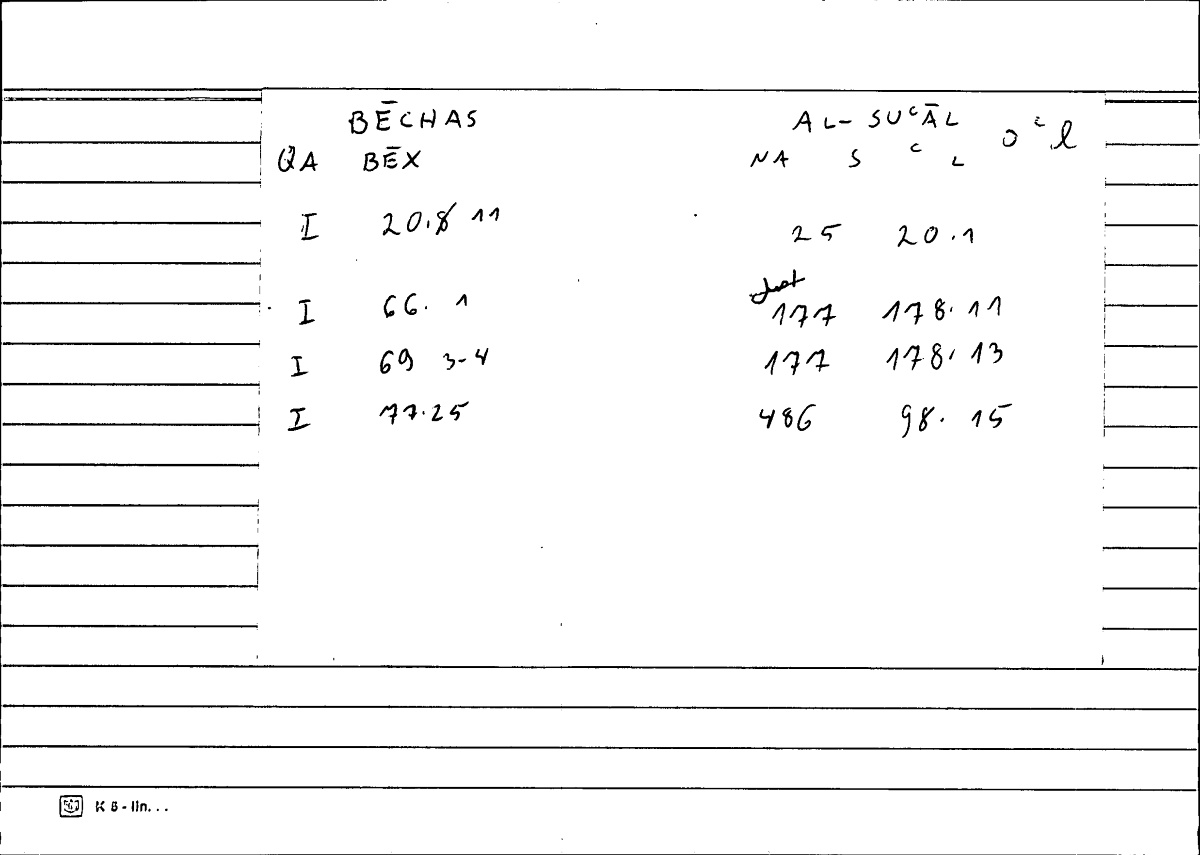 BĒCHAS AL- SUᶜĀL oᶜl
QA BĒX NA S ᶜ L
I 20.8 11 25 20.1
I 66. 1 177 178. 11
I 69 3-4 177 178. 13
I 77.25 486 98. 15